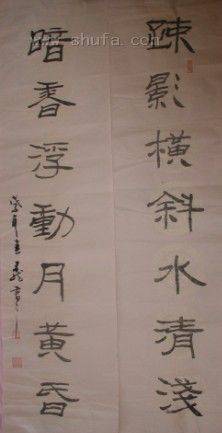 疎影橫斜水清淺
暗香浮動月黃昏
www.shufa.com